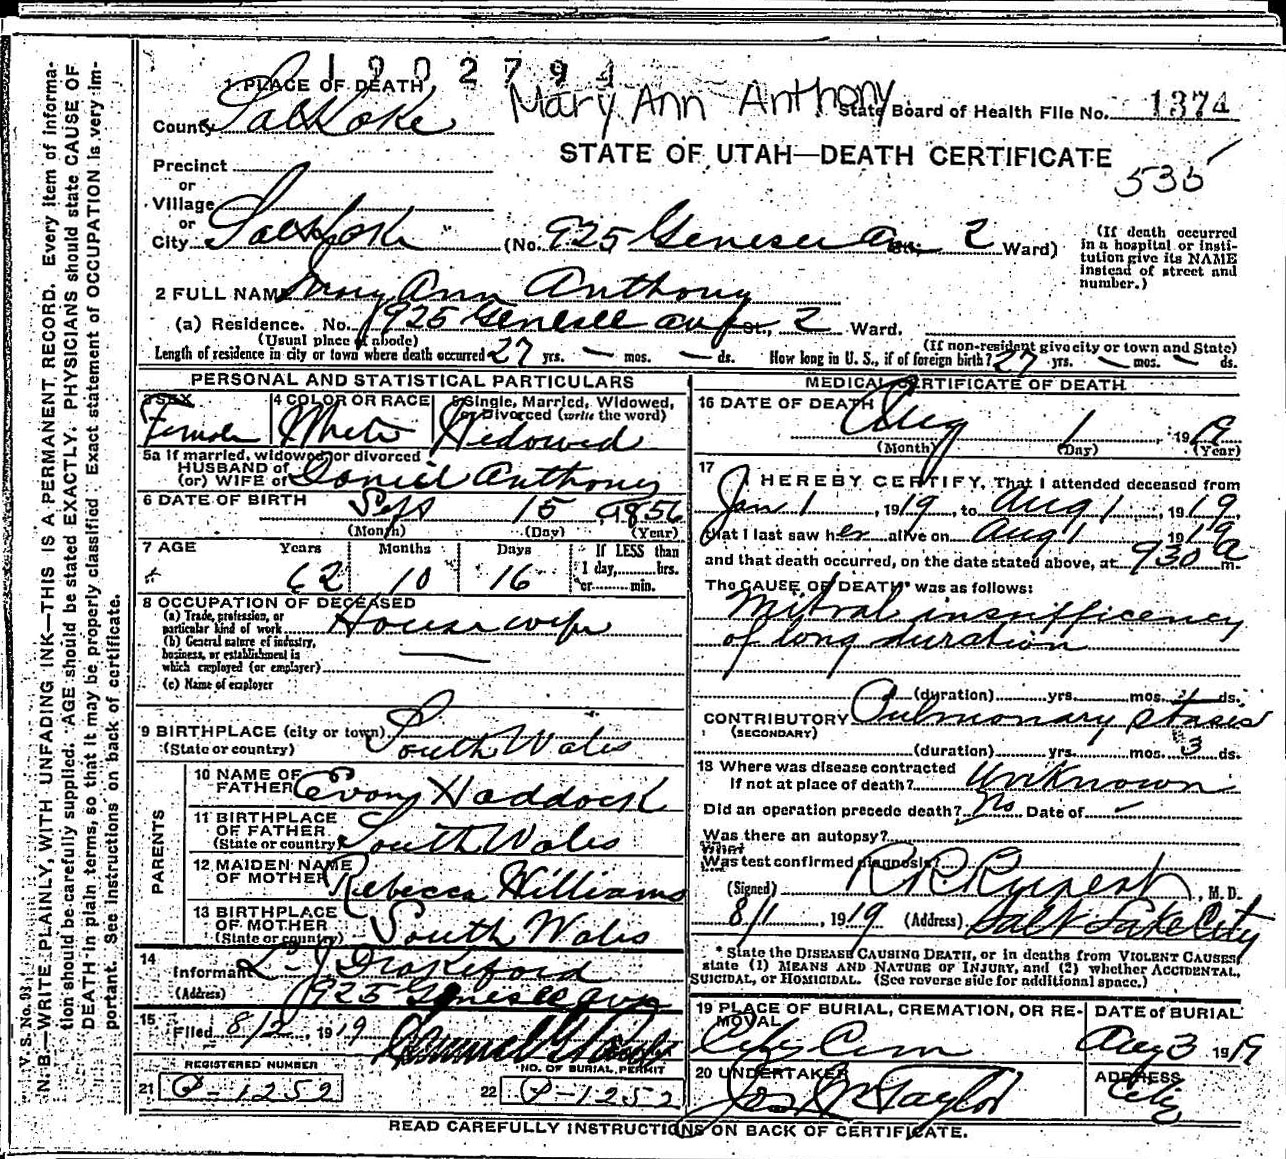 1902791
1 PLACE OF DEATH
Mary Ann Anthony
State Board of Health File No. 1374
County Salt Lake
STATE OF UTAH—DEATH CERTIFICATE
535
Precinct
or
Village
or
City Salt Lake (No. 925 Genesee Av St. 2 Ward)
(If death occurred in a hospital or institution give its NAME instead of street and number.)
2 FULL NAME Mary Ann Anthony
(a) Residence. No. 925 Genesee ave St., 2 Ward.
(Usual place of abode) (If non-resident give city or town and State)
Length of residence in city or town where death occurred 27 yrs. — mos. — ds. How long in U. S., if of foreign birth? 27 yrs. — mos. — ds.
PERSONAL AND STATISTICAL PARTICULARS
3 SEX 4 COLOR OR RACE 5 Single, Married, Widowed, or Divorced (write the word)
Female White Widowed
5a If married, widowed, or divorced
HUSBAND of
(or) WIFE of Daniel Anthony
6 DATE OF BIRTH Sept 15, 1856
(Month) (Day) (Year)
7 AGE Years Months Days If LESS than
1 day,......hrs.
or......min.
62 10 16
8 OCCUPATION OF DECEASED
(a) Trade, profession, or
particular kind of work Housewife
(b) General nature of industry,
business, or establishment in
which employed (or employer) —
(c) Name of employer
9 BIRTHPLACE (city or town)
(State or country) South Wales
PARENTS
10 NAME OF
FATHER Evan Haddock
11 BIRTHPLACE
OF FATHER
(State or country) South Wales
12 MAIDEN NAME
OF MOTHER Rebecca Williams
13 BIRTHPLACE
OF MOTHER
(State or country) South Wales
14
Informant L. J. Drakeford
(Address) 925 Genesee ave
15
Filed 8/2, 1919
REGISTERED NUMBER NO. OF BURIAL PERMIT
21 O-1252 22 O-1252
MEDICAL CERTIFICATE OF DEATH
16 DATE OF DEATH
Aug 1, 1919
(Month) (Day) (Year)
17
I HEREBY CERTIFY, That I attended deceased from
Jan 1, 1919, to Aug 1, 1919,
that I last saw her alive on Aug 1 1919
and that death occurred, on the date stated above, at 930 a m.
The CAUSE OF DEATH* was as follows:
Mitral insufficency
of long duration
(duration) yrs. mos. ds.
CONTRIBUTORY Pulmonary stases
(SECONDARY)
(duration) yrs. mos. 3 ds.
18 Where was disease contracted
if not at place of death? Unknown
Did an operation precede death? No Date of —
Was there an autopsy?
What
Was test confirmed diagnosis?
(Signed) , M. D.
8/1, 1919 (Address) Salt Lake City
* State the DISEASE CAUSING DEATH, or in deaths from VIOLENT CAUSES,
state (1) MEANS AND NATURE OF INJURY, and (2) whether ACCIDENTAL,
SUICIDAL, or HOMICIDAL. (See reverse side for additional space.)
19 PLACE OF BURIAL, CREMATION, OR REMOVAL DATE of BURIAL
City Cem Aug 3 1919
20 UNDERTAKER ADDRESS
Taylor City
READ CAREFULLY INSTRUCTIONS ON BACK OF CERTIFICATE.
V. S. No. 98
N. B.—WRITE PLAINLY, WITH UNFADING INK—THIS IS A PERMANENT RECORD. Every item of informa-
tion should be carefully supplied. AGE should be stated EXACTLY. PHYSICIANS should state CAUSE OF
DEATH in plain terms, so that it may be properly classified. Exact statement of OCCUPATION is very im-
portant. See instructions on back of certificate.